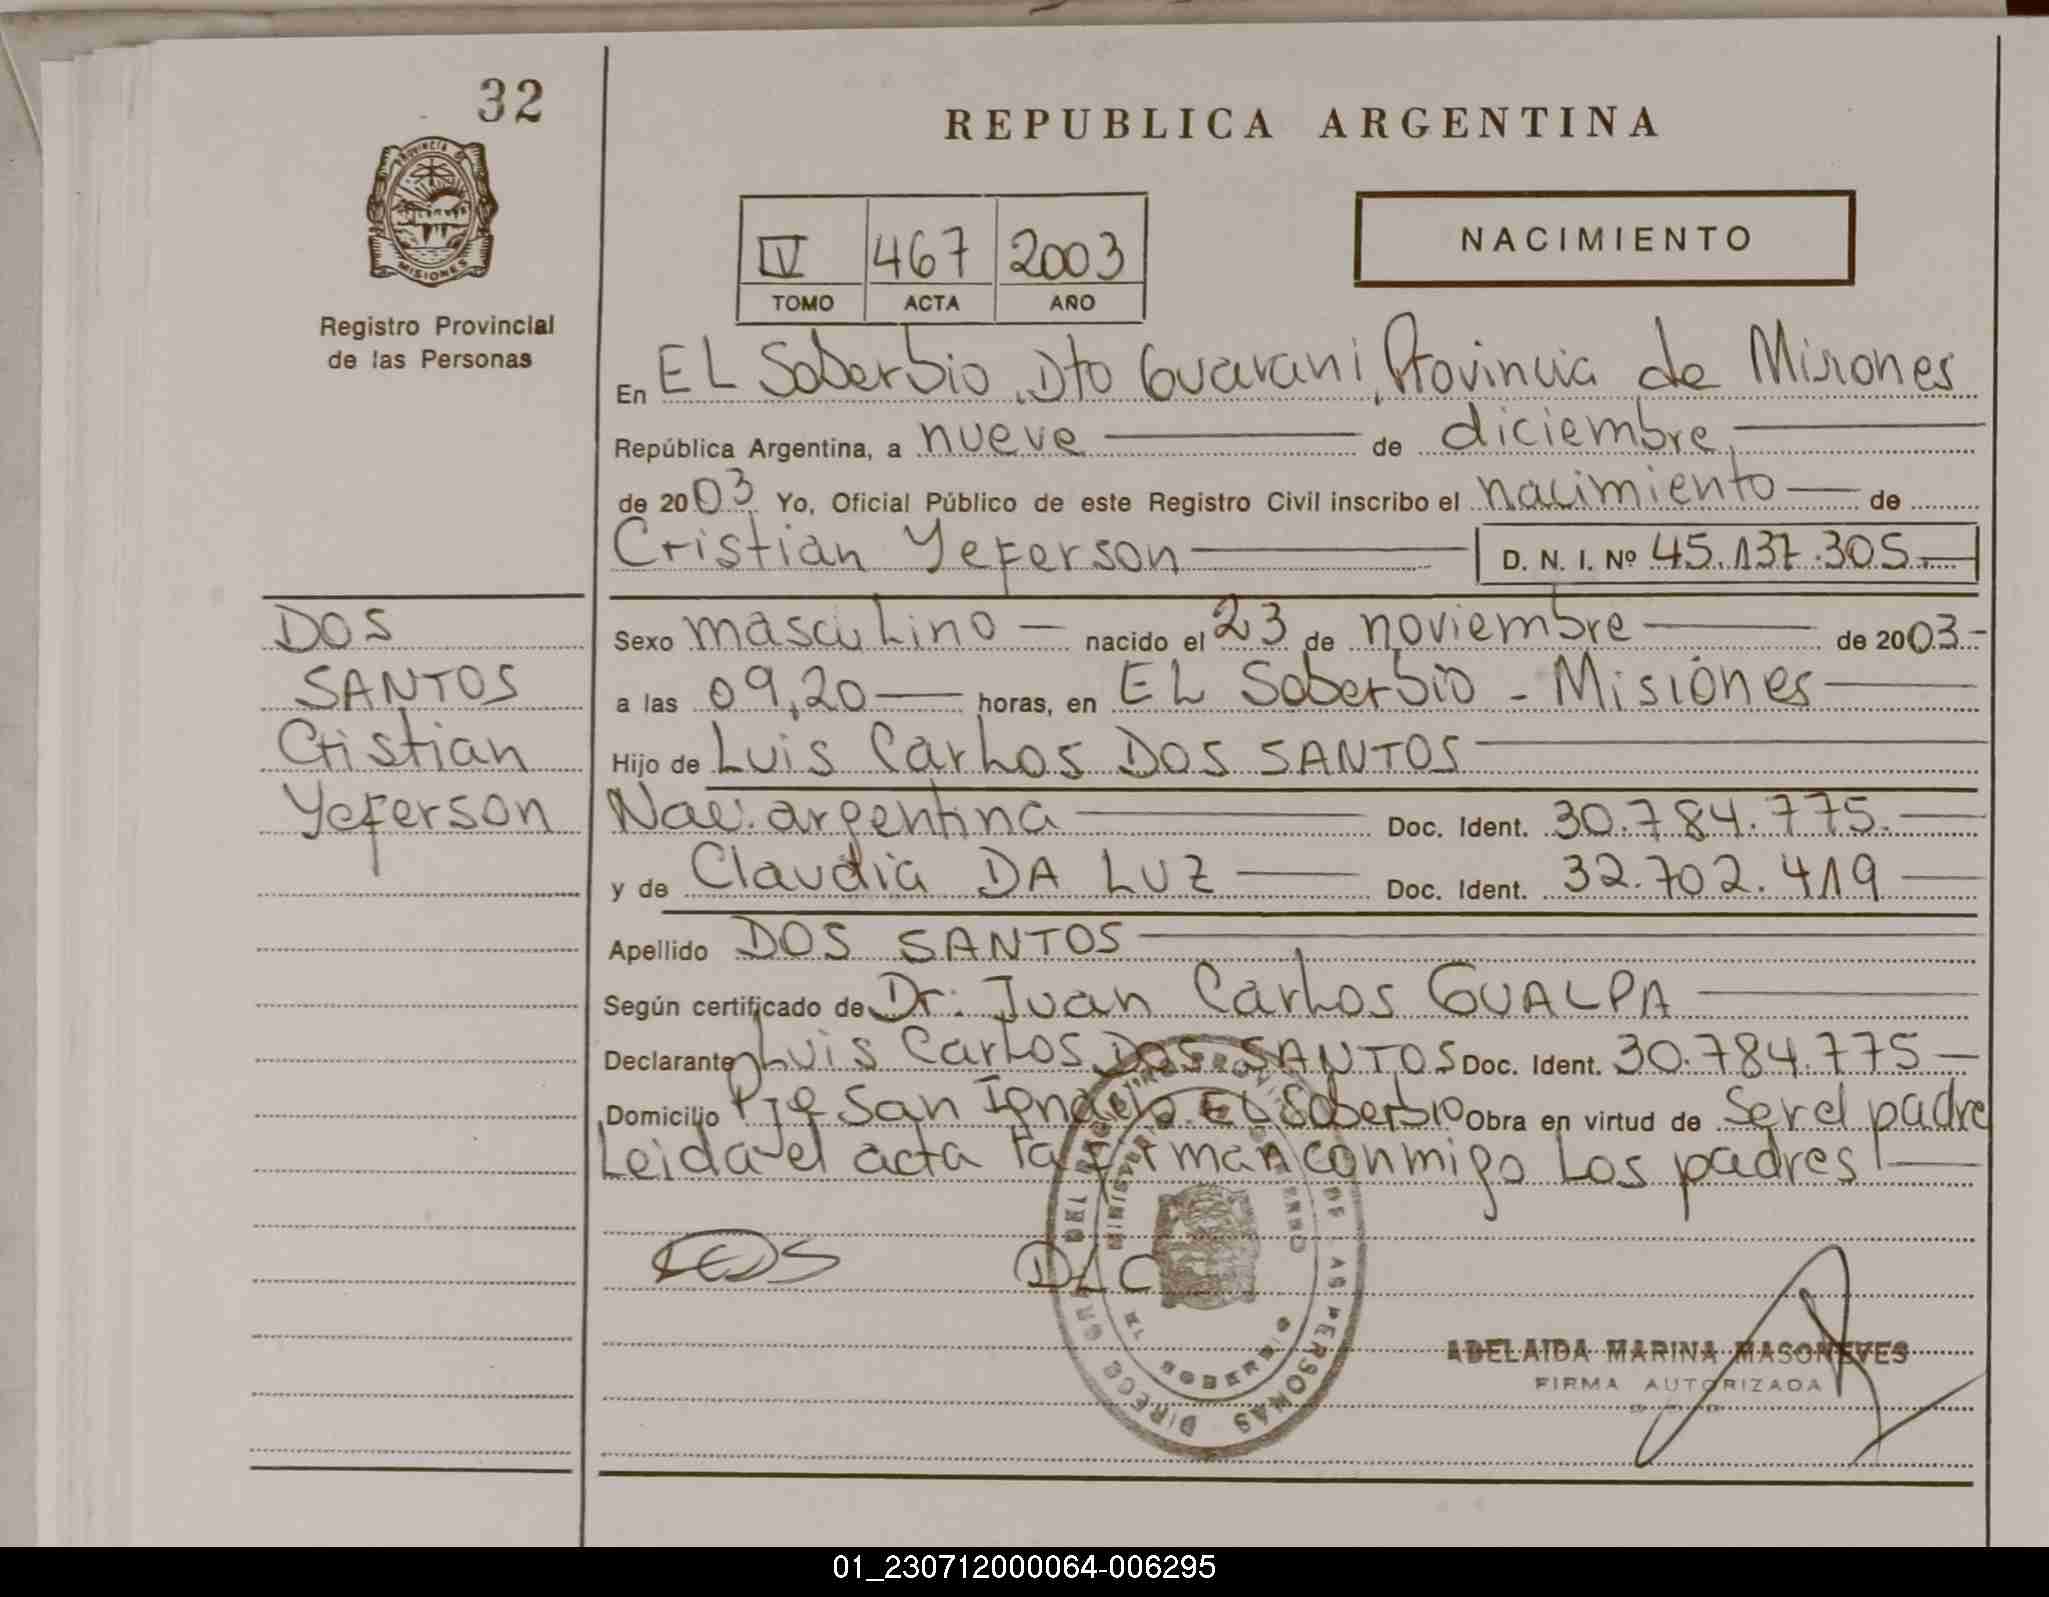 32
PROVINCIA DE
MISIONES
Registro Provincial
de las Personas
REPUBLICA ARGENTINA
IV 467 2003
TOMO ACTA AÑO
NACIMIENTO
En EL Soberbio, Dto Guarani, Provincia de Misiones
República Argentina, a nueve de diciembre
de 2003 Yo, Oficial Público de este Registro Civil inscribo el nacimiento de
Cristian Yeferson D. N. I. Nº 45.137.305.-
DOS
SANTOS
Cristian
Yeferson
Sexo masculino nacido el 23 de noviembre de 2003.-
a las 09,20 horas, en EL Soberbio - Misiones
Hijo de Luis Carlos DOS SANTOS
Nac. argentina Doc. Ident. 30.784.775.
y de Claudia DA LUZ Doc. Ident. 32.702.419
Apellido DOS SANTOS
Según certificado de Dr. Juan Carlos GUALPA
Declarante Luis Carlos DOS SANTOS Doc. Ident. 30.784.775
Domicilio Pje San Ignacio EL Soberbio Obra en virtud de Ser el padre
Leida el acta la firman conmigo Los padres
DLC
DE LAS PERSONAS
EL SOBERBIO
ADELAIDA MARINA MASONEVES
FIRMA AUTORIZADA
01_230712000064-006295